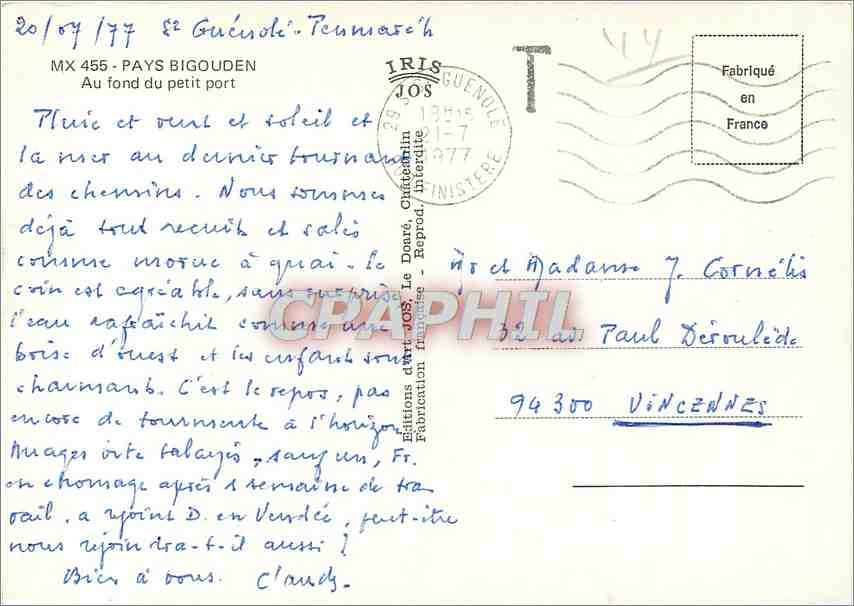 20/07/77 St Guénolé-Penmarc'h
MX 455 - PAYS BIGOUDEN
Au fond du petit port
Pluie et vent et soleil et
la mer au dernier tournant
des chemins. Nous sommes
déjà tout recuits et salés
comme morue à quai. Le
coin est agréable, sans surprise
l'eau rafraîchit comme une
bois d'ouest et les enfants sont
charmants. C'est le repos, pas
encore de tourmente à l'horizon
Nuages vite balayés, sauf un, Fr.
en chomage après 1 semaine de tra-
vail, a rejoint D. en Vendée, peut-être
nous rejoindra-t-il aussi !
Bien à vous. Claude.
IRIS
JOS
Editions d'Art JOS, Le Doaré, Châteaulin
Fabrication française - Reprod. interdite
29 ST GUENOLE
18H15
21-7
1977
FINISTERE
T
Fabriqué
en
France
CPARHIL
Mr et Madame J. Cornélis
32 av Paul Déroulède
94300 VINCENNES